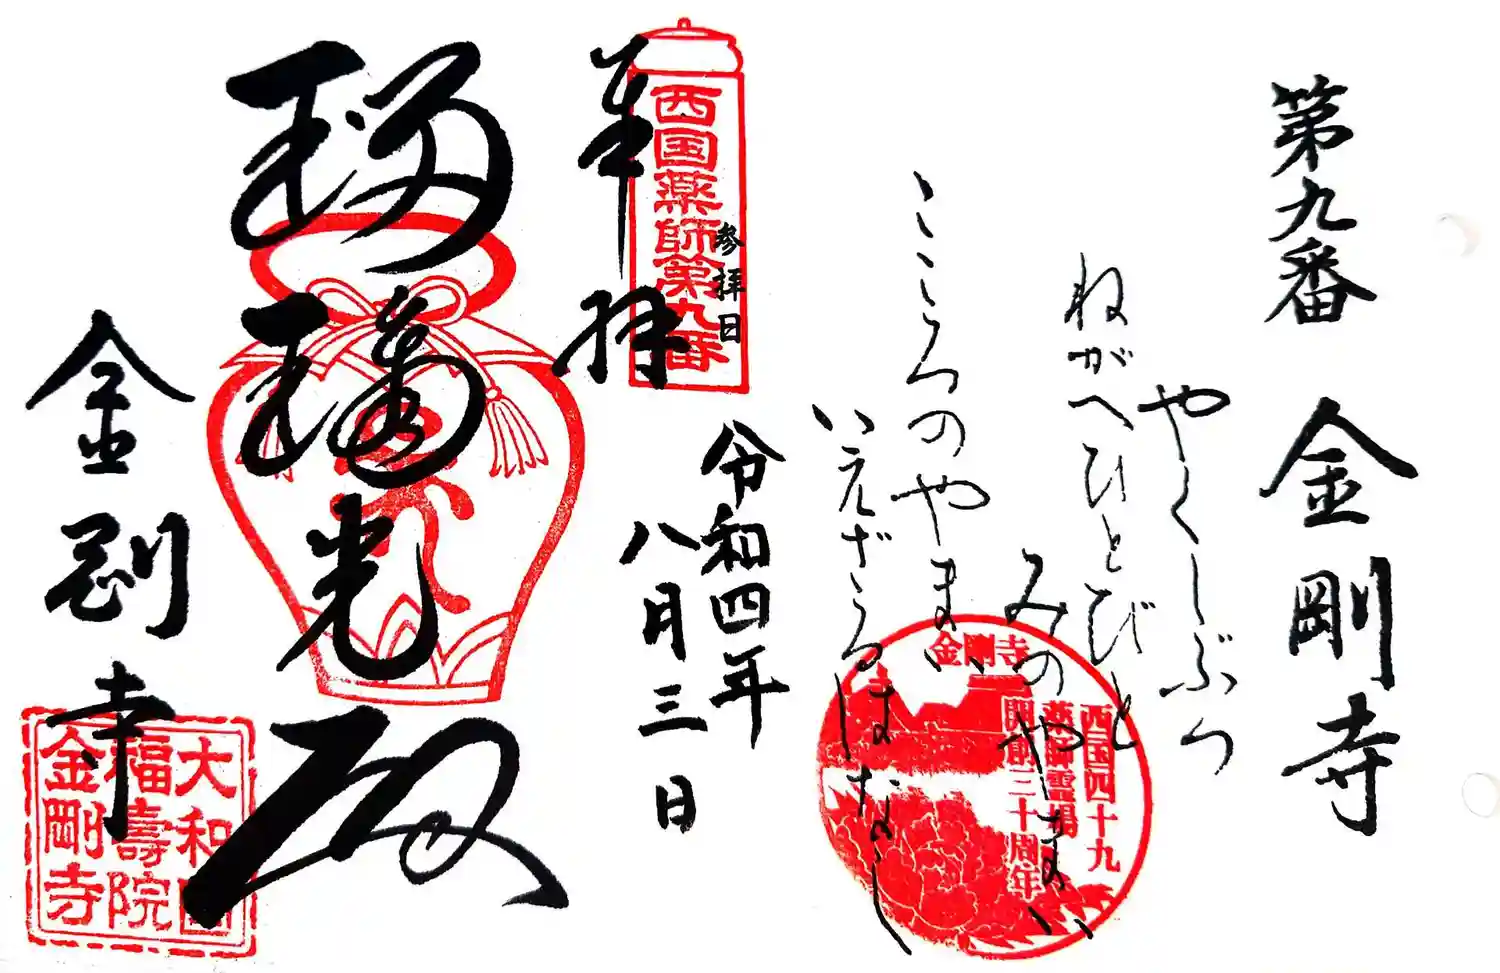 第九番　金剛寺
やくしぶつ
ねがへひとびと
みのやまい
こころのやまい
いえざるはなし
金剛寺
西国四十九
薬師霊場
開創三十周年
奉拝
西国薬師第九番
参拝日
令和四年
八月三日
瑠璃光殿
金剛寺
大和國
福壽院
金剛寺